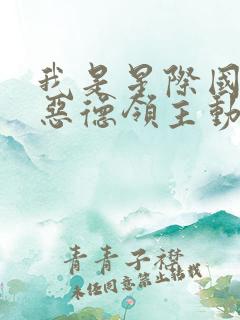 我是星際國
惡德領主動
青青子襟
未经同意禁止转载